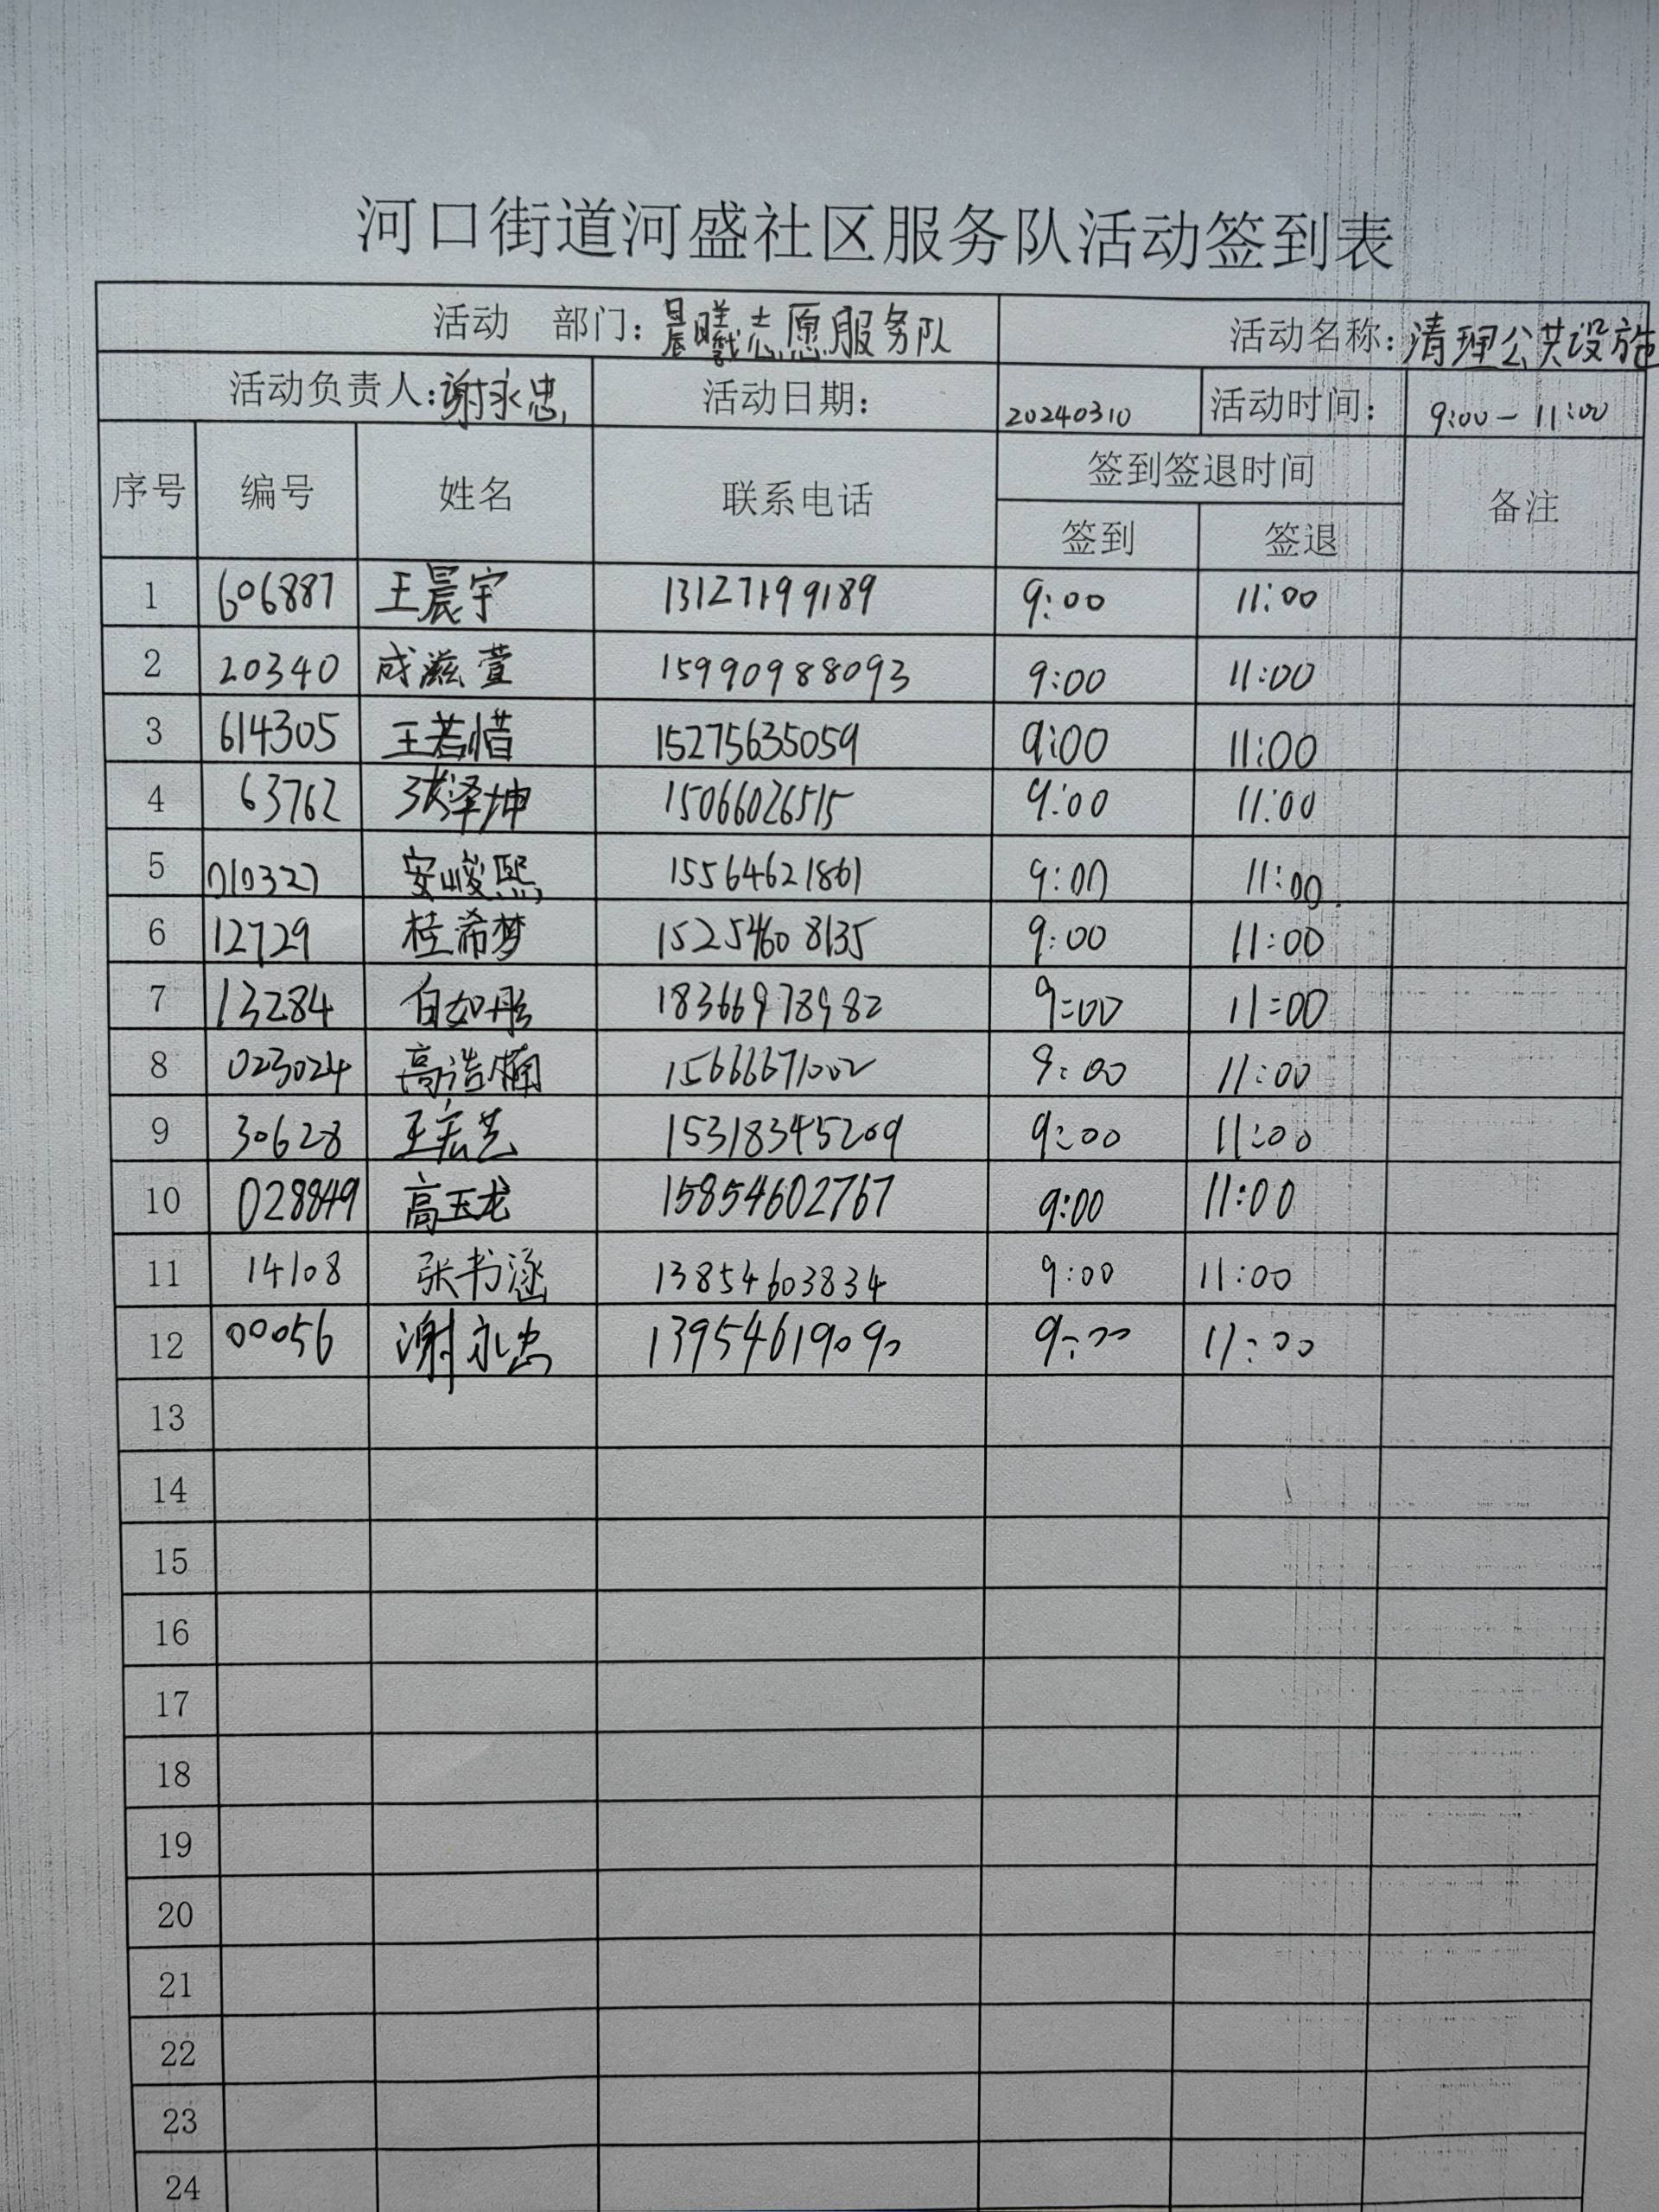 河口街道河盛社区服务队活动签到表
活动 部门：晨曦志愿服务队 活动名称：清理公共设施
活动负责人：谢永忠 活动日期： 20240310 活动时间： 9:00-11:00
序号 编号 姓名 联系电话 签到签退时间 备注
签到 签退
1 606887 王晨宇 13127199189 9:00 11:00
2 20340 成滋萱 15990988093 9:00 11:00
3 614305 王若惜 15275635059 9:00 11:00
4 63762 张泽坤 15066026515 9:00 11:00
5 010327 安峻熙 15564621861 9:00 11:00
6 12729 桂希梦 15254608135 9:00 11:00
7 13284 白如彤 18366978982 9:00 11:00
8 023024 高浩楠 15666671002 9:00 11:00
9 30628 王宏艺 15318345209 9:00 11:00
10 028849 高玉龙 15854602767 9:00 11:00
11 14108 张书涵 13854603834 9:00 11:00
12 00056 谢永忠 13954619090 9:00 11:00
13
14
15
16
17
18
19
20
21
22
23
24